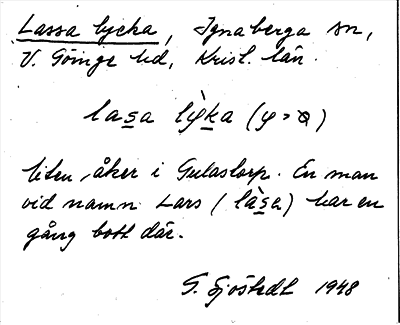 Lassa lycka, Ignaberga sn,
V. Göinge hd, Krist. län.
lasa lỳka (y > ø)
liten åker i Gulastorp. En man
vid namn Lars (làsa) har en
gång bott där.
G. Sjöstedt 1948